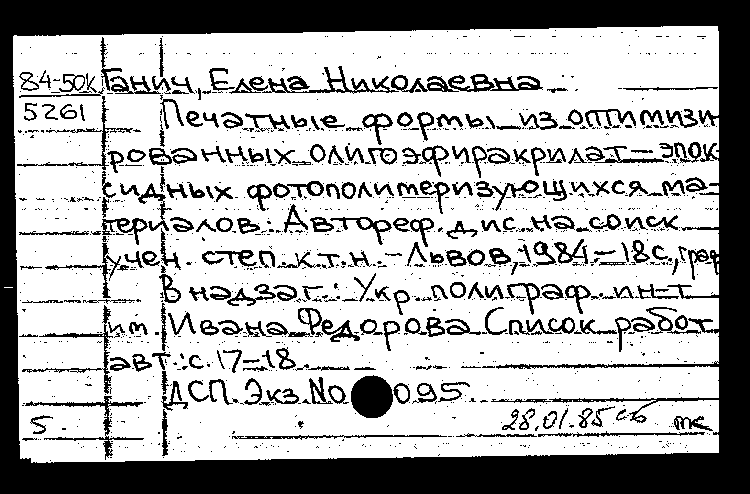 84-50к Ганич, Елена Николаевна
5261 Печатные формы из оптимизи-
рованных олигоэфиракрилат-эпок-
сидных фотополимеризующихся ма-
териалов: Автореф. дис. на соиск
учен. степ. к.т.н. - Львов, 1984. - 18 с., граф
В надзаг.: Укр. полиграф. ин-т
им. Ивана Федорова Список работ
авт.: с. 17-18.
ДСП. Экз. No 095.
5. 28.01.85